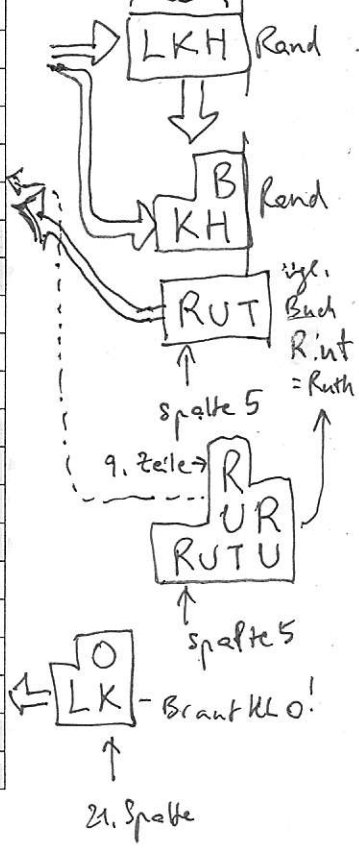 LKH Rand
B
KH Rand
RUT vgl.
Buch
Rut
= Ruth
Spalte 5
9. Zeile
R
UR
RUTU
Spalte 5
O
LK - Braut
21. Spalte